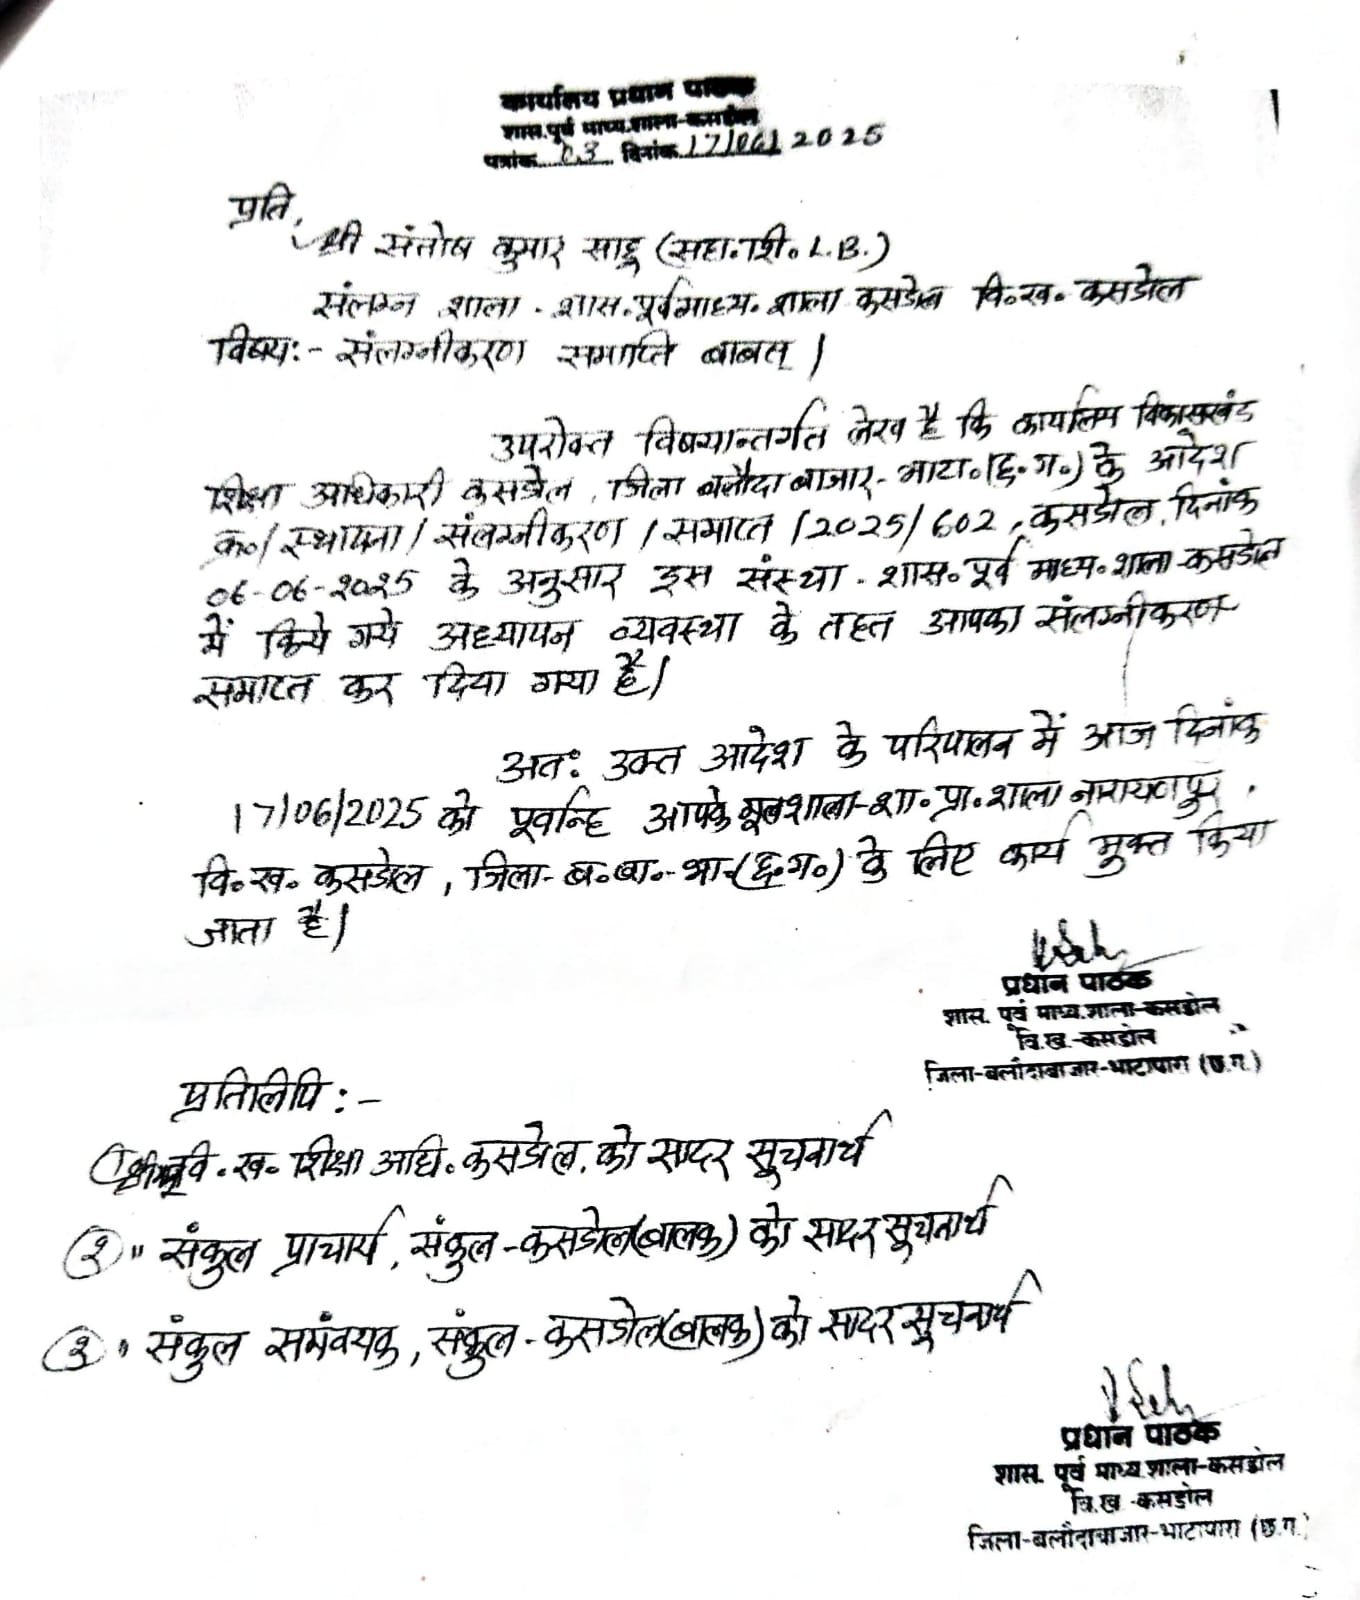 कार्यालय प्रधान पाठक
शास.पूर्व माध्य.शाला-कसडोल
पत्रांक 03 दिनांक 17/06/2025
प्रति,
श्री संतोष कुमार साहू (सहा.शि. L.B.)
संलग्न शाला - शास.पूर्व माध्य. शाला कसडोल वि.ख. कसडोल
विषय:- संलग्नीकरण समाप्ति बाबत्।
उपरोक्त विषयान्तर्गत लेख है कि कार्यालय विकासखंड
शिक्षा अधिकारी कसडोल, जिला बलौदाबाजार-भाटा.(छ.ग.) के आदेश
क्र./स्थापना/संलग्नीकरण/समाप्त/2025/602, कसडोल, दिनांक
06-06-2025 के अनुसार इस संस्था - शास. पूर्व माध्य. शाला-कसडोल
में किये गये अध्यापन व्यवस्था के तहत आपका संलग्नीकरण
समाप्त कर दिया गया है।
अत: उक्त आदेश के परिपालन में आज दिनांक
17/06/2025 को पूर्वान्ह आपके मूलशाला-शा. प्रा. शाला नारायणपुर,
वि.ख. कसडोल, जिला-ब.बा.-भा-(छ.ग.) के लिए कार्य मुक्त किया
जाता है।
प्रधान पाठक
शास. पूर्व माध्य.शाला-कसडोल
वि.ख.-कसडोल
जिला-बलौदाबाजार-भाटापारा (छ.ग.)
प्रतिलिपि:-
वि.ख. शिक्षा अधि. कसडोल, को सादर सूचनार्थ
(2) " संकुल प्राचार्य, संकुल-कसडोल(बालक) को सादर सूचनार्थ
(3) " संकुल समंवयक, संकुल-कसडोल(बालक) को सादर सूचनार्थ
प्रधान पाठक
शास. पूर्व माध्य.शाला-कसडोल
वि.ख.-कसडोल
जिला-बलौदाबाजार-भाटापारा (छ.ग.)